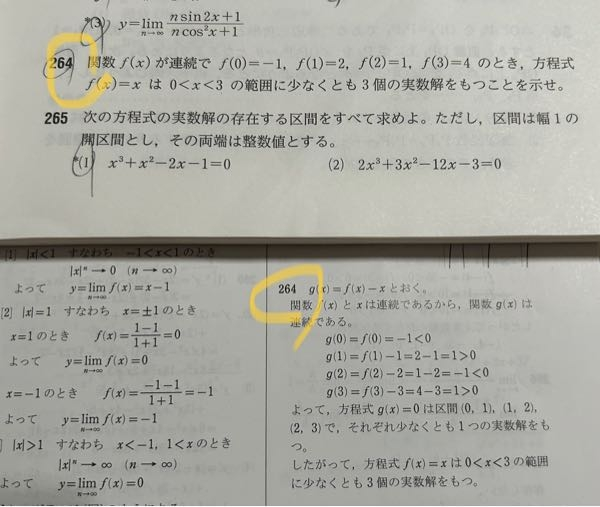 *(3) y=lim_{n→∞} (n sin2x+1)/(n cos²x+1)
264 関数 f(x) が連続で f(0)=−1, f(1)=2, f(2)=1, f(3)=4 のとき，方程式
f(x)=x は 0<x<3 の範囲に少なくとも 3 個の実数解をもつことを示せ。
265 次の方程式の実数解の存在する区間をすべて求めよ。ただし，区間は幅 1 の
開区間とし，その両端は整数値とする。
*(1) x³+x²−2x−1=0 (2) 2x³+3x²−12x−3=0
[1] |x|<1 すなわち −1<x<1 のとき
|x|ⁿ→0 (n→∞)
よって y=lim_{n→∞} f(x)=x−1
[2] |x|=1 すなわち x=±1 のとき
x=1 のとき f(x)=(1−1)/(1+1)=0
よって y=lim_{n→∞} f(x)=0
x=−1 のとき f(x)=(−1−1)/(1+1)=−1
よって y=lim_{n→∞} f(x)=−1
] |x|>1 すなわち x<−1, 1<x のとき
|x|ⁿ→∞ (n→∞)
よって y=lim_{n→∞} f(x)=0
264 g(x)=f(x)−x とおく。
関数 f(x) と x は連続であるから，関数 g(x) は
連続である。
g(0)=f(0)=−1<0
g(1)=f(1)−1=2−1=1>0
g(2)=f(2)−2=1−2=−1<0
g(3)=f(3)−3=4−3=1>0
よって，方程式 g(x)=0 は区間 (0, 1), (1, 2),
(2, 3) で，それぞれ少なくとも 1 つの実数解をも
つ。
したがって，方程式 f(x)=x は 0<x<3 の範囲
に少なくとも 3 個の実数解をもつ。